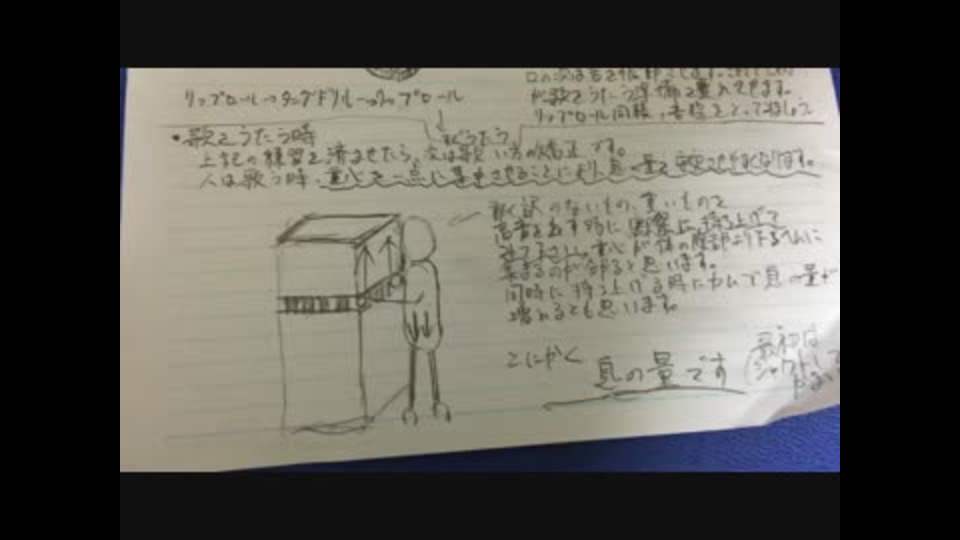 リップロール→タングドリル→リップロール
ロの次は舌を
が歌をうたう準備を
リップロール同様、音程をとってみましょう
↓
すぐうたう
・歌をうたう時
上記の練習を済ませたら、次は歌い方の矯正です。
人は歌う時、重心を一点に集中させることにより息の量を安定させやすくなります。
訳のないもの、重いものを
高音を出す時に実際に持ち上げて
みて下さい。重心が体の腹部より下あたりに
集まるのが分ると思います。
同時に持ち上げる時にカムで息の量が
増れるとも思います。
とにかく
息の量です
最初は
シャウトして